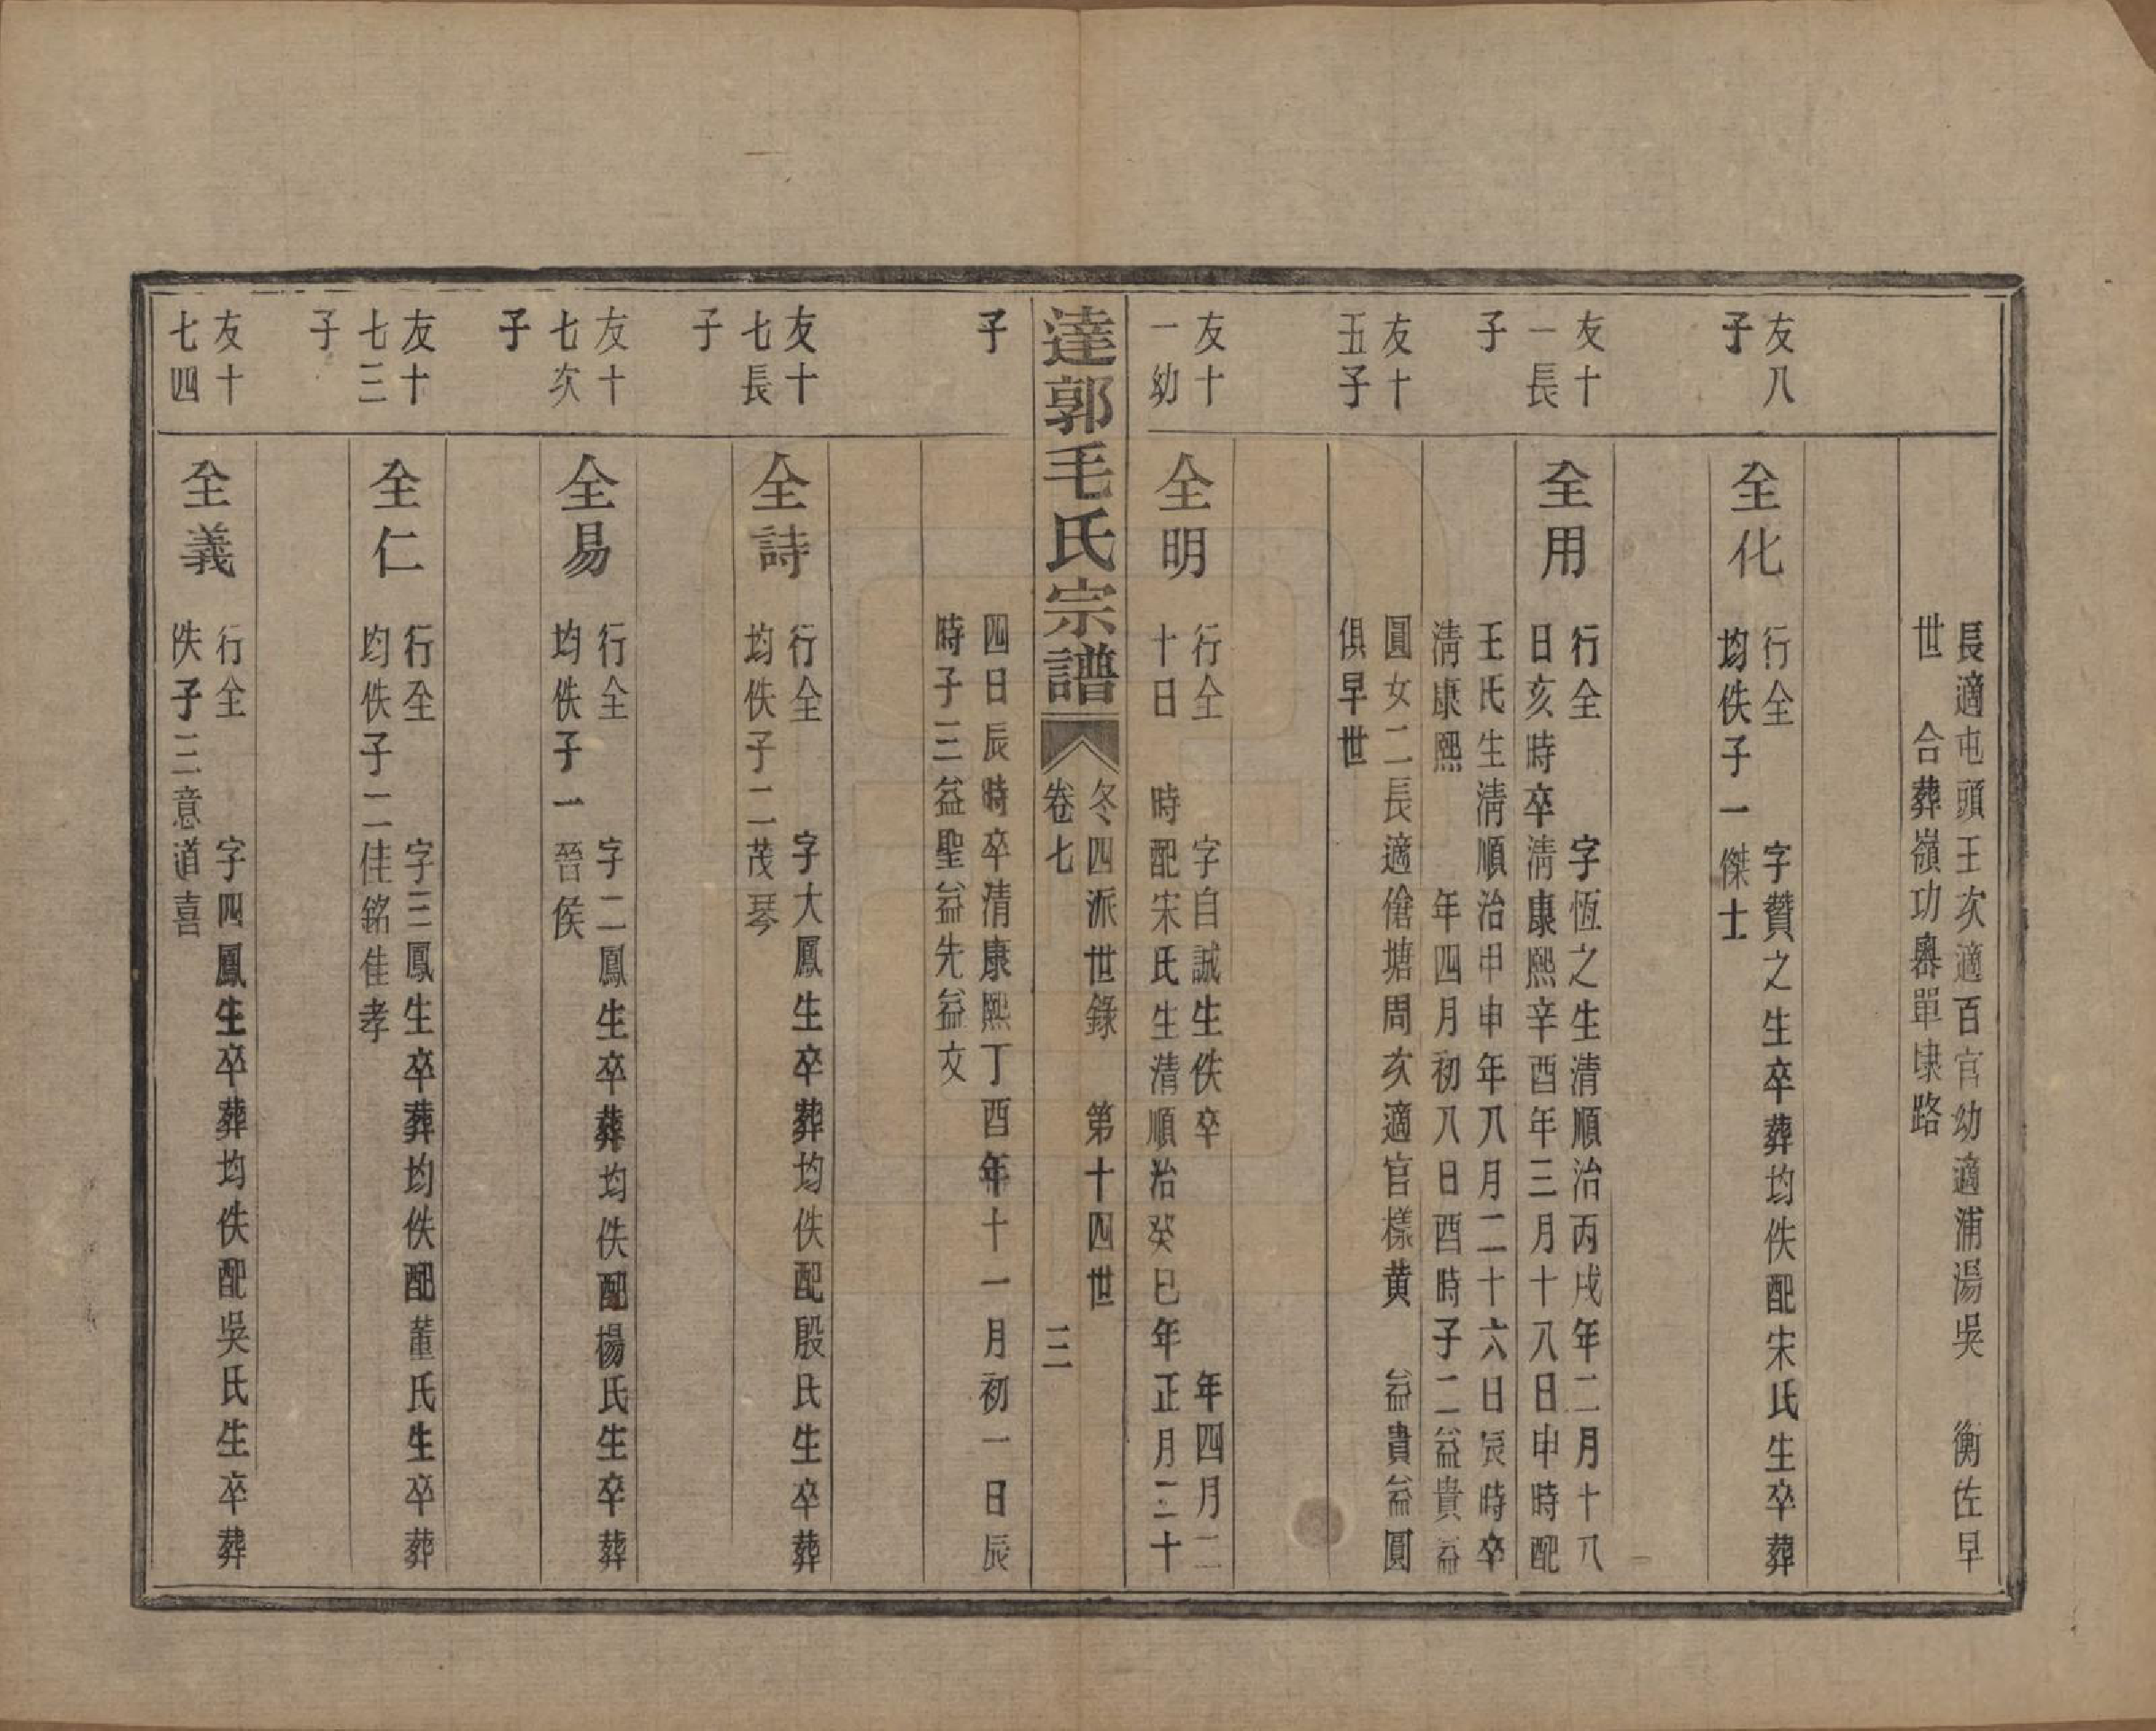 長適屯頭王次適百官幼適浦湯吳　衡佐早
世　合葬嶺功嶴單埭路
友八
子
全化
行全　　字贊之生卒葬均佚配宋氏生卒葬
均佚子一傑士
友十
一長
子
全用
行全　　字恆之生清順治丙戌年二月十八
日亥時卒清康熙辛酉年三月十八日申時配
王氏生清順治甲申年八月二十六日辰時卒
清康熙　　年四月初八日酉時子二益貴益
圓女二長適傖塘周次適官樣黄　益貴益圓
俱早世
友十
五子
友十
一幼
全明
行全　　字自誠生佚卒　　　　年四月二
十日　時配宋氏生清順治癸巳年正月二十
達郭毛氏宗譜
冬四派世錄　第十四世
卷七
三
子
四日辰時卒清康熙丁酉年十一月初一日辰
時子三益聖益先益文
友十
七長
子
全詩
行全　　字大鳳生卒葬均佚配殷氏生卒葬
均佚子二茂琴
友十
七次
子
全易
行全　　字二鳳生卒葬均佚配楊氏生卒葬
均佚子一晉侯
友十
七三
子
全仁
行全　　字三鳳生卒葬均佚配董氏生卒葬
均佚子二佳銘佳孝
友十
七四
全義
行全　　字四鳳生卒葬均佚配吳氏生卒葬
佚子三意道喜